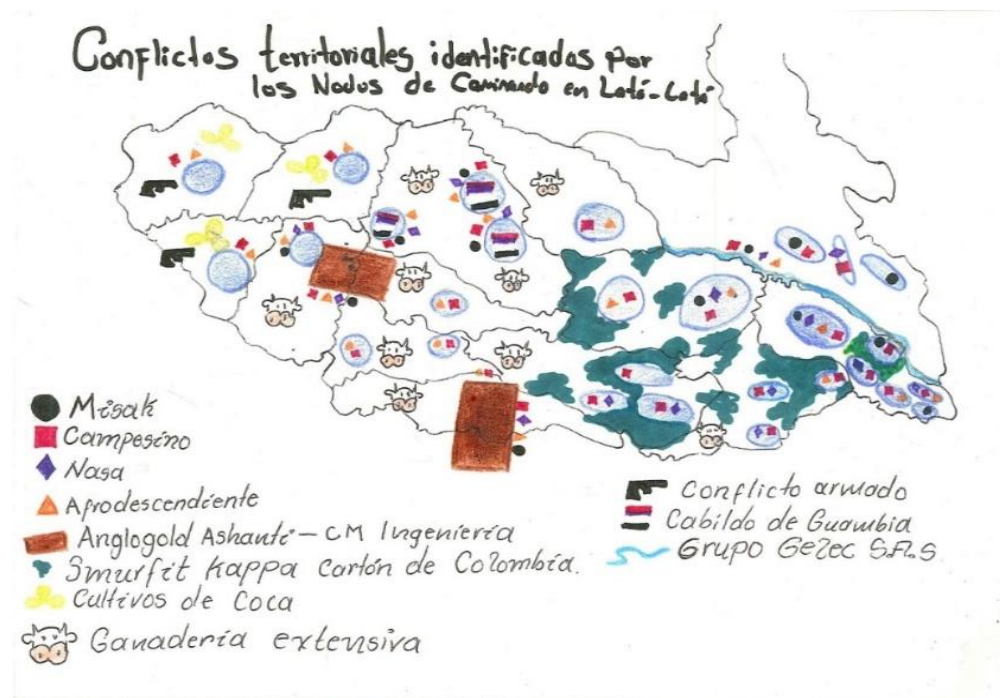 Conflictos territoriales identificados por
los Nodos de Caminando en Lató-Lató
Misak
Campesino
Nasa
Afrodescendiente
Anglogold Ashanti - CM Ingeniería
Smurfit Kappa Cartón de Colombia.
Cultivos de Coca
Ganadería extensiva
Conflicto armado
Cabildo de Guambia
Grupo Gelec S.A.S